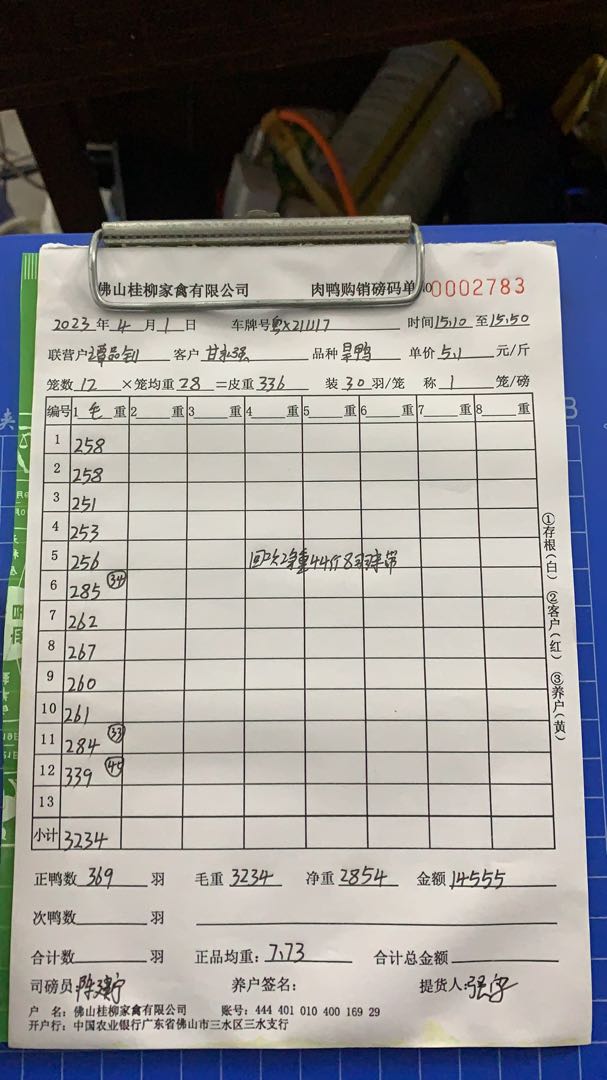 佛山桂柳家禽有限公司 肉鸭购销磅码单 NO 0002783
2023 年 4 月 1 日 车牌号 粤X21117 时间 15:10 至 15:50
联营户 谭品钊 客户 品种 旱鸭 单价 5.1 元/斤
笼数 12 ×笼均重 28 =皮重 336 装 30 羽/笼 称 1 笼/磅
编号 1 毛 重 2 重 3 重 4 重 5 重 6 重 7 重 8 重
1 258
2 258
3 251
4 253
5 256
44斤8
6 285 34
7 262
8 267
9 260
10 261
11 284 33
12 339 45
13
小计 3234
正鸭数 369 羽 毛重 3234 净重 2854 金额 14555
次鸭数 羽
合计数 羽 正品均重: 7.73 合计总金额
司磅员: 养户签名: 提货人:
户 名: 佛山桂柳家禽有限公司 账号: 444 401 010 400 169 29
开户行: 中国农业银行广东省佛山市三水区三水支行
①存根(白) ②客户(红) ③养户(黄)